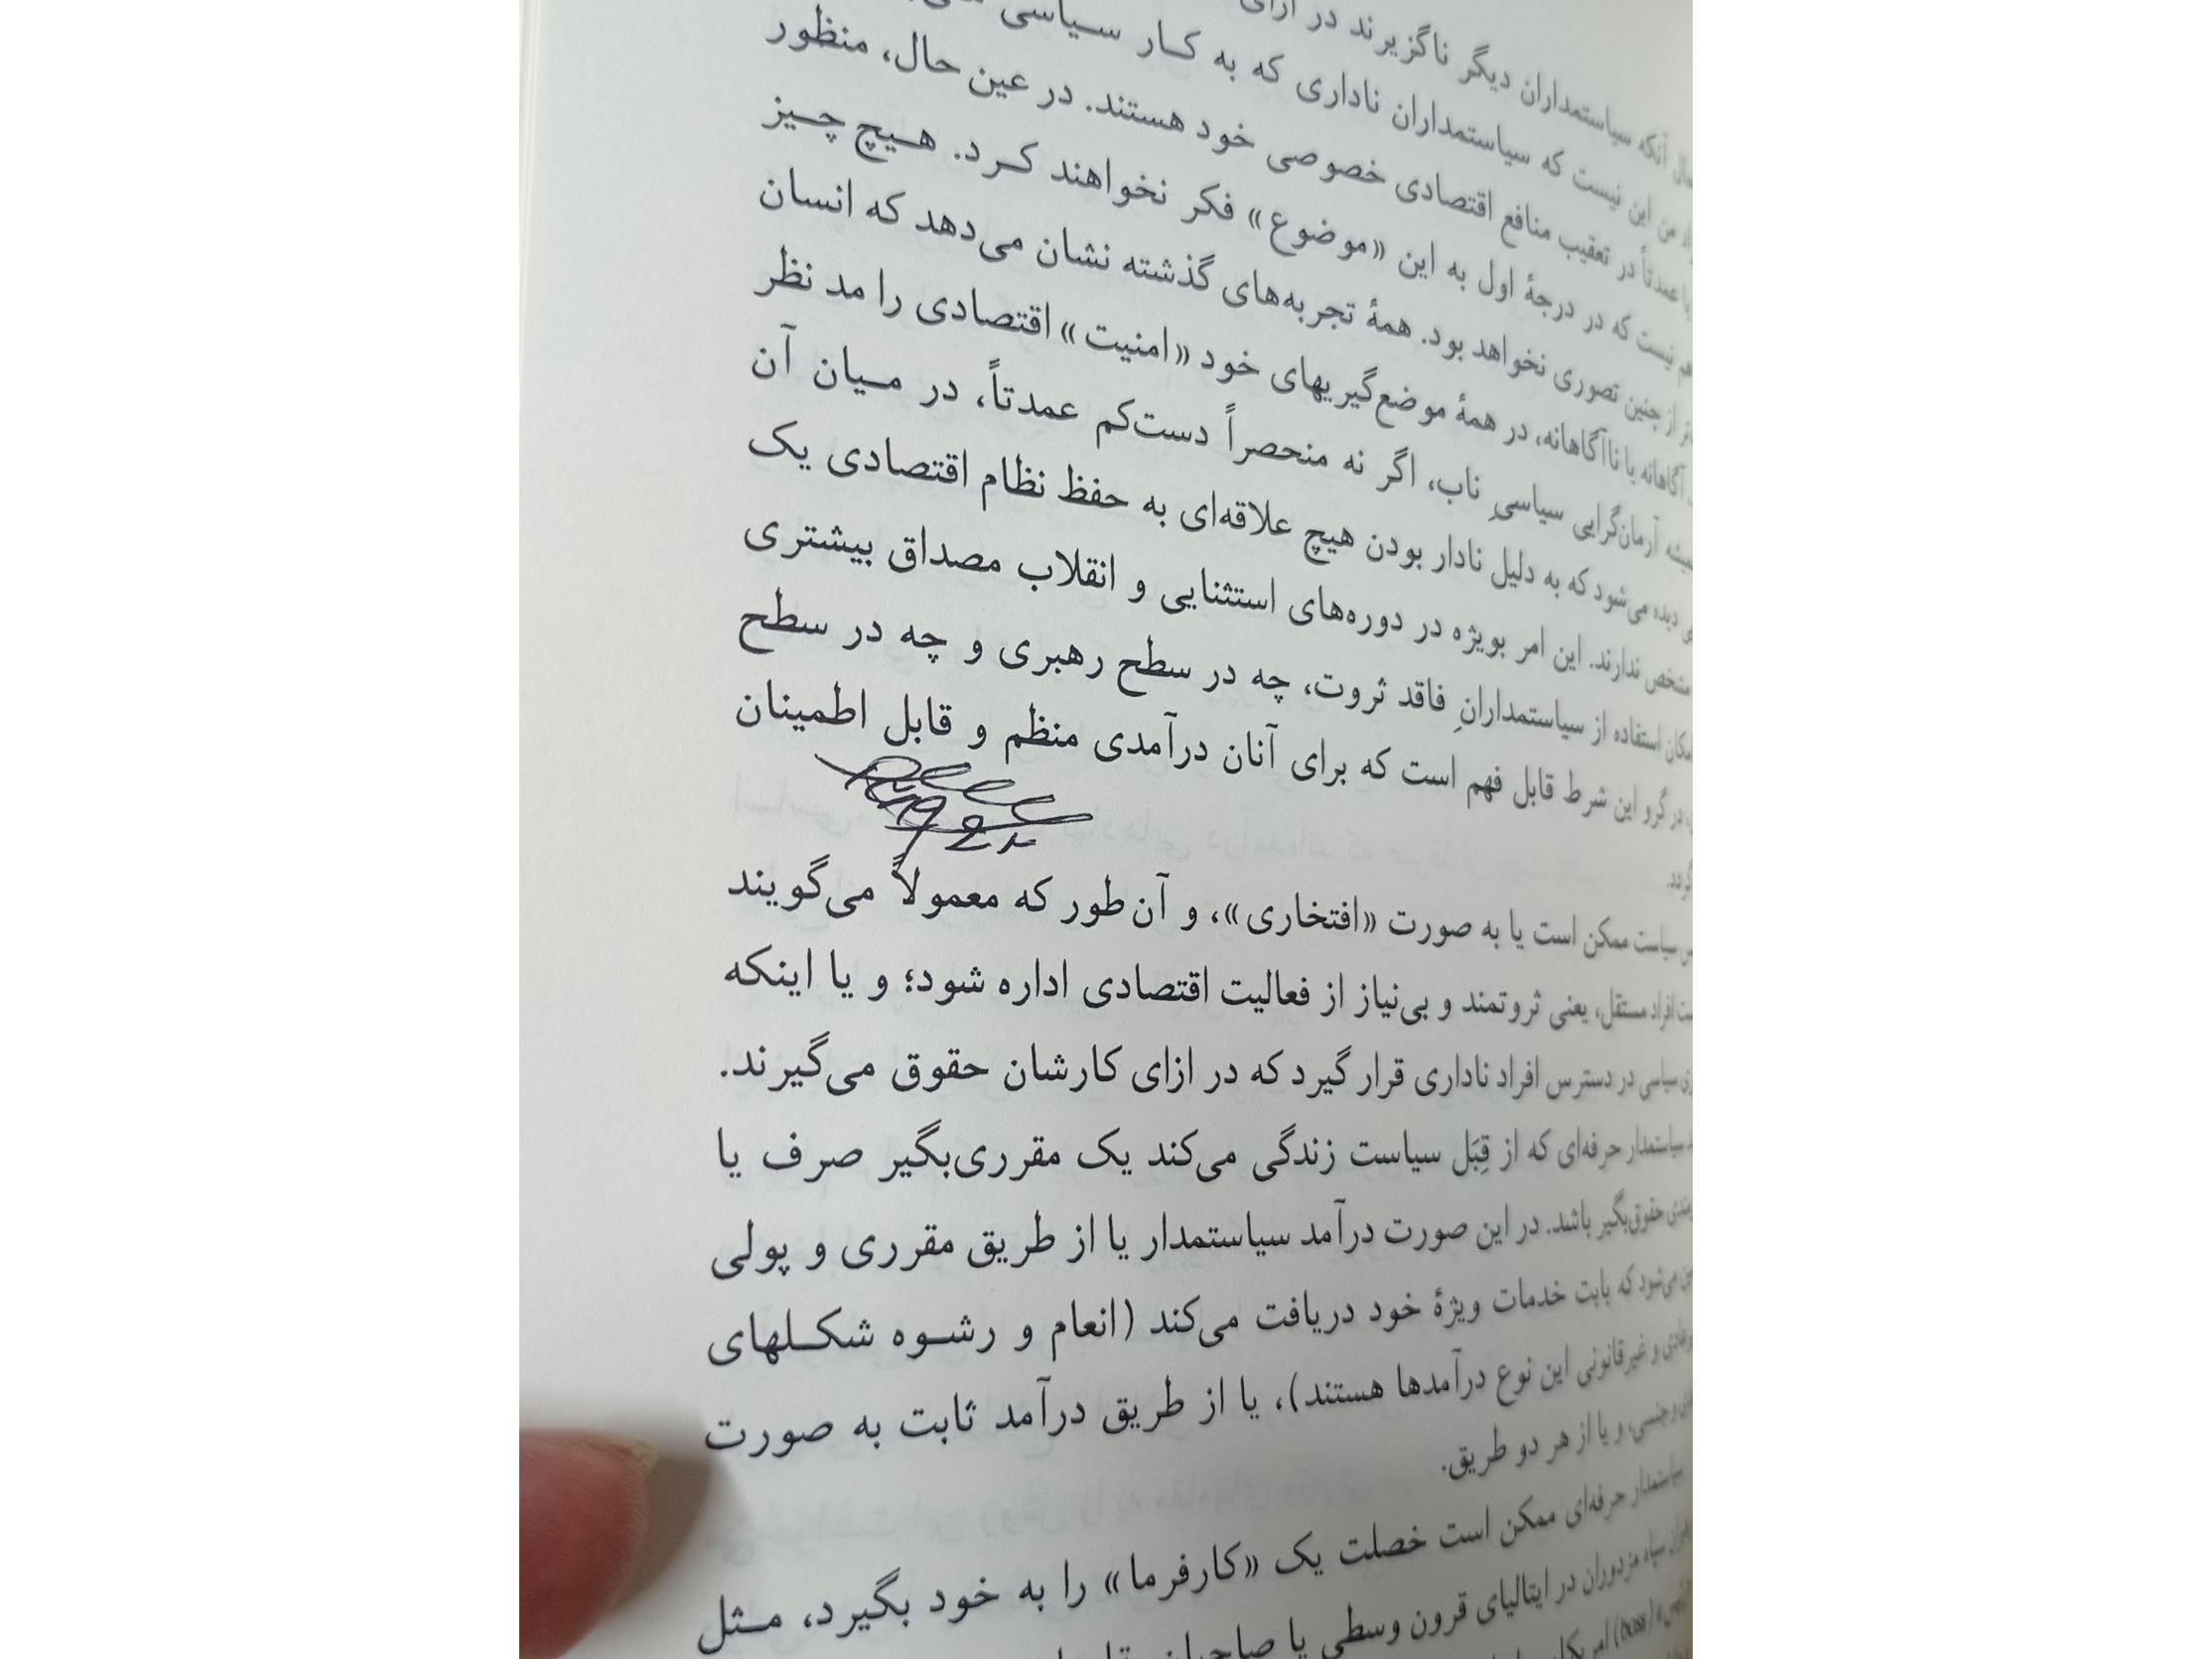 آنکه سیاستمداران دیگر ناگزیرند در ازای
من این نیست که سیاستمداران ناداری که به کار سیاسی
عمدتاً در تعقیب منافع اقتصادی خصوصی خود هستند. در عین حال، منظور
هم نیست که در درجهٔ اول به این «موضوع» فکر نخواهند کرد. هیچ چیز
از چنین تصوری نخواهد بود. همهٔ تجربه‌های گذشته نشان می‌دهد که انسان
آگاهانه یا ناآگاهانه، در همهٔ موضع‌گیریهای خود «امنیت» اقتصادی را مد نظر
آرمان‌گرایی سیاسیِ ناب، اگر نه منحصراً دست‌کم عمدتاً، در میان آن
دیده می‌شود که به دلیل نادار بودن هیچ علاقه‌ای به حفظ نظام اقتصادی یک
ندارند. این امر بویژه در دوره‌های استثنایی و انقلاب مصداق بیشتری
استفاده از سیاستمدارانِ فاقد ثروت، چه در سطح رهبری و چه در سطح
در گرو این شرط قابل فهم است که برای آنان درآمدی منظم و قابل اطمینان
سیاست ممکن است یا به صورت «افتخاری»، و آن‌طور که معمولاً می‌گویند
افراد مستقل، یعنی ثروتمند و بی‌نیاز از فعالیت اقتصادی اداره شود؛ و یا اینکه
سیاسی در دسترس افراد ناداری قرار گیرد که در ازای کارشان حقوق می‌گیرند.
سیاستمدار حرفه‌ای که از قِبَل سیاست زندگی می‌کند یک مقرری‌بگیر صرف یا
حقوق‌بگیر باشد. در این صورت درآمد سیاستمدار یا از طریق مقرری و پولی
می‌شود که بابت خدمات ویژهٔ خود دریافت می‌کند (انعام و رشوه شکلهای
و غیرقانونی این نوع درآمدها هستند)، یا از طریق درآمد ثابت به صورت
و جنسی، و یا از هر دو طریق.
سیاستمدار حرفه‌ای ممکن است خصلت یک «کارفرما» را به خود بگیرد، مثل
سپاه مزدوران در ایتالیای قرون وسطی یا صاحبان
(boss)